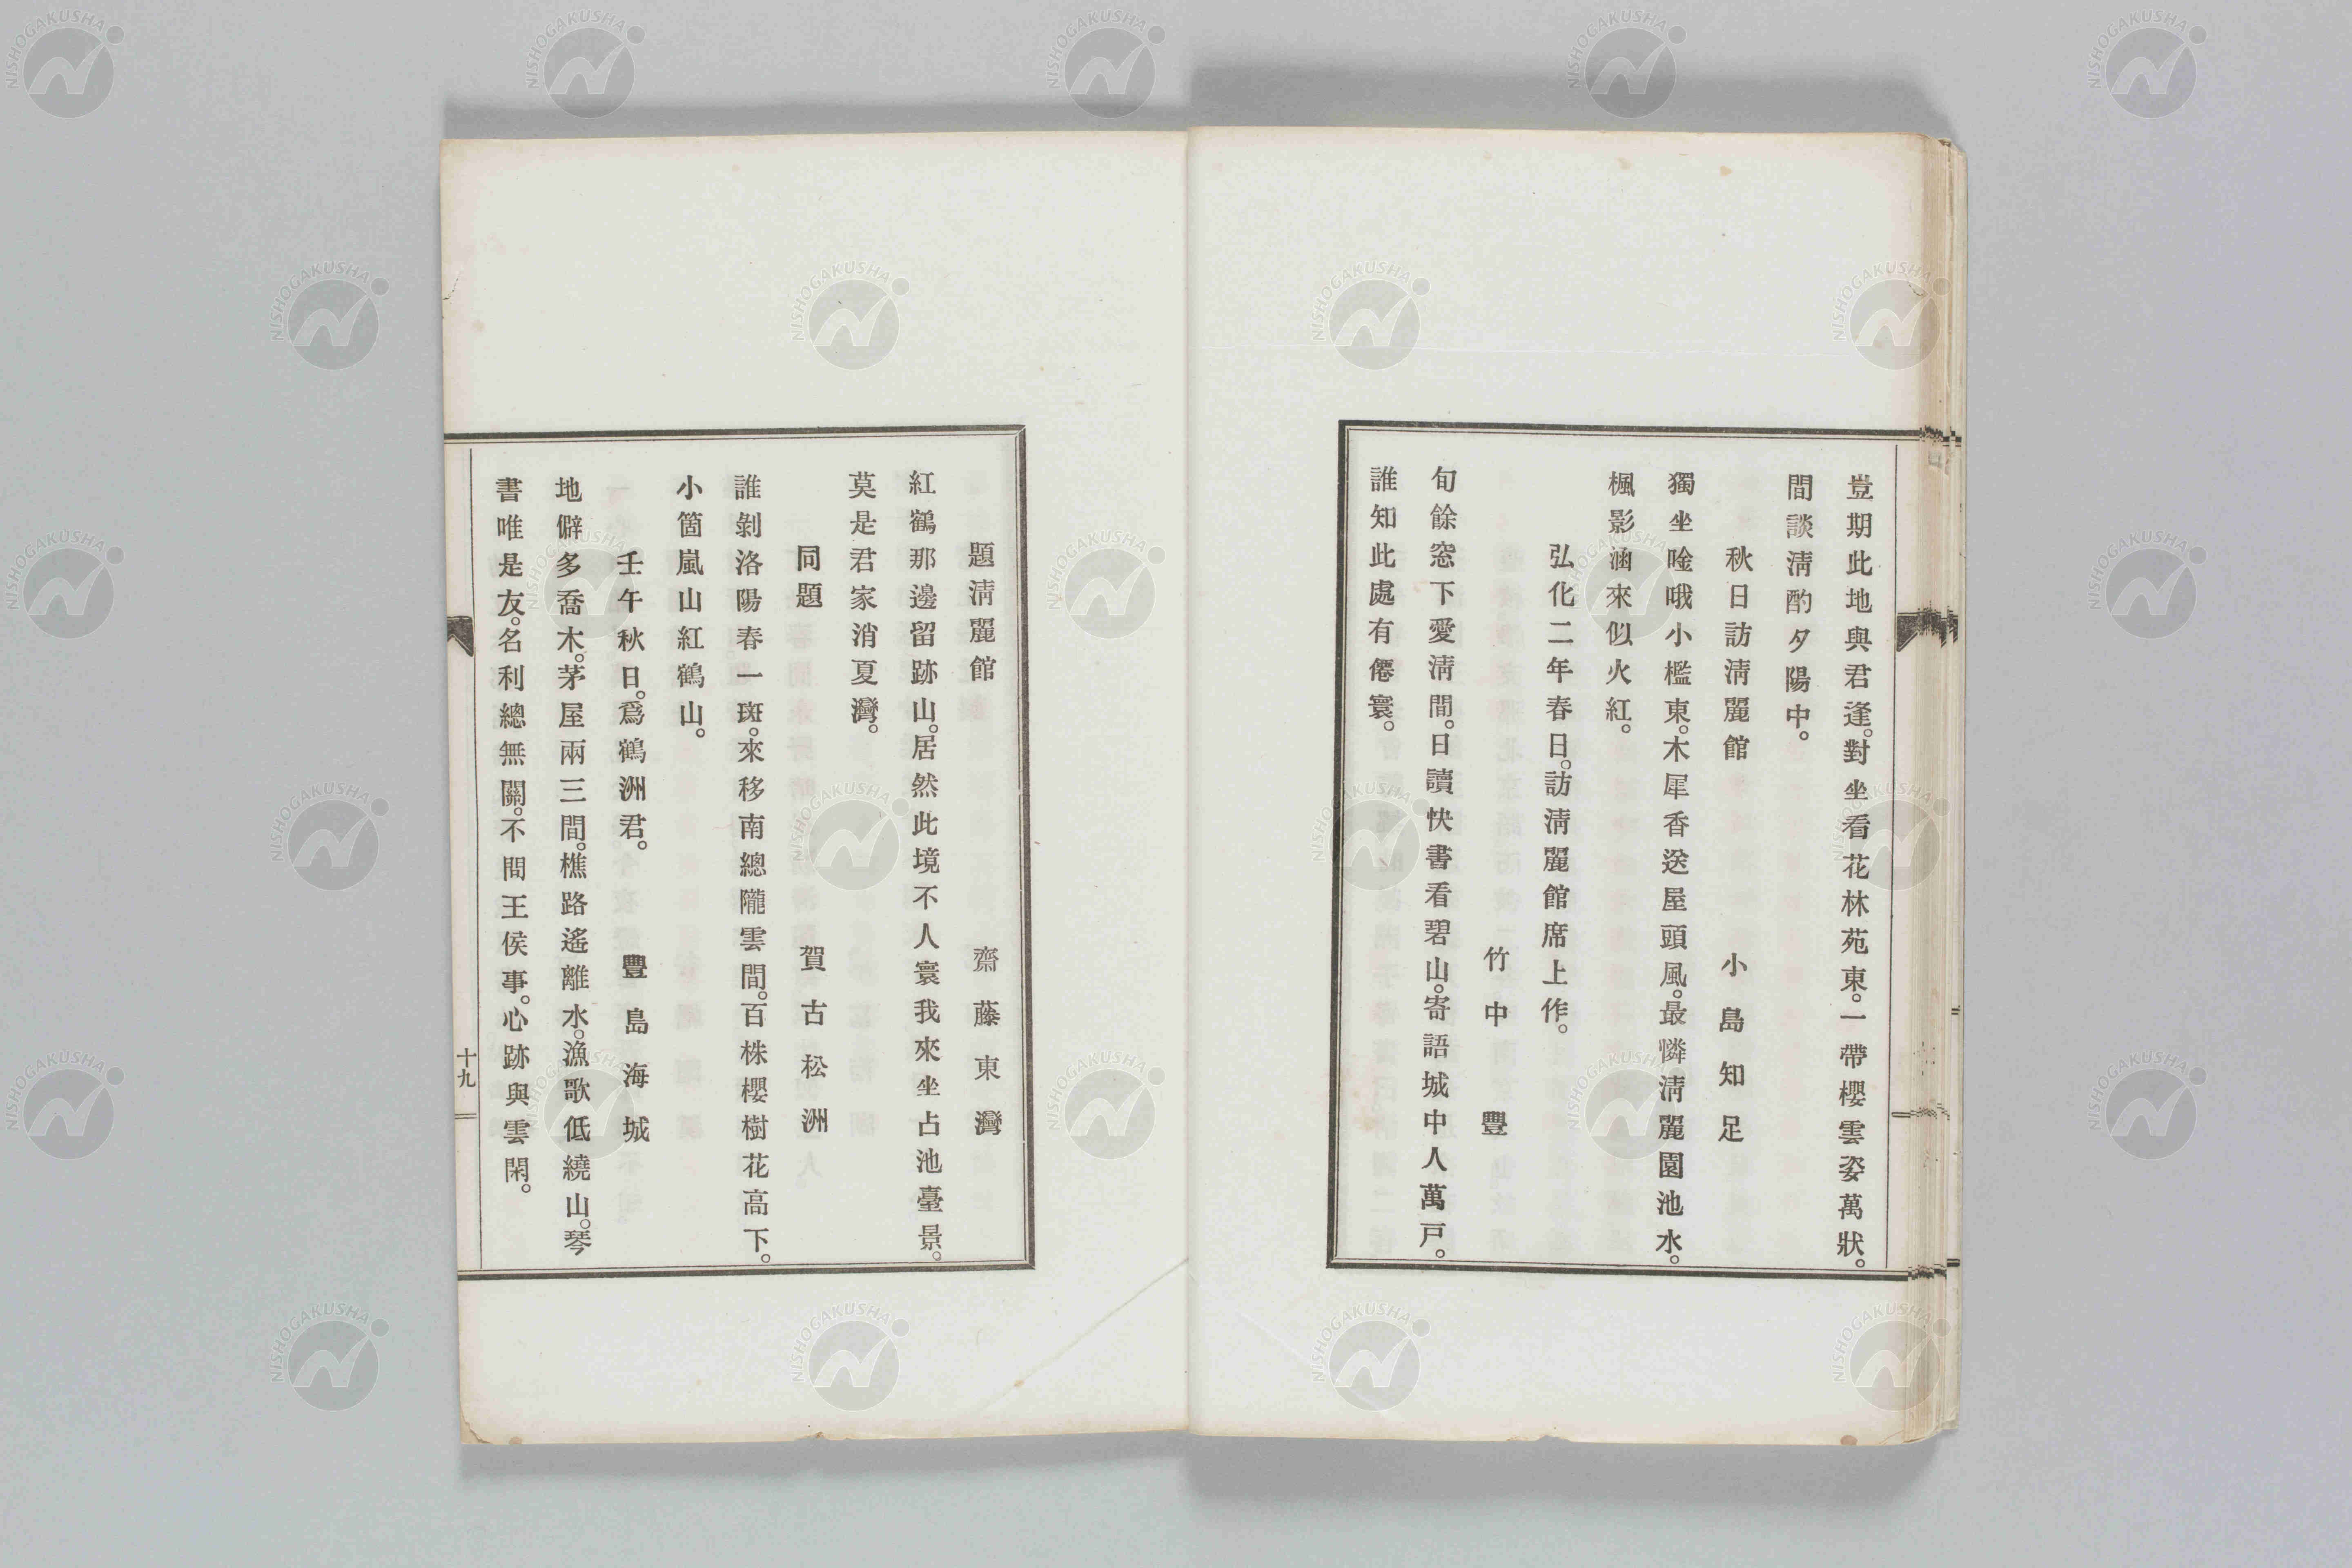 豈期此地與君逢。對坐看花林苑東。一帶櫻雲姿萬狀。
間談淸酌夕陽中。
秋日訪淸麗館 小島知足
獨坐唫哦小檻東。木犀香送屋頭風。最憐淸麗園池水。
楓影涵來似火紅。
弘化二年春日。訪淸麗館席上作。
竹中豐
旬餘窓下愛淸間。日讀快書看碧山。寄語城中人萬戸。
誰知此處有僊寰。
題淸麗館 齋藤東灣
紅鶴那邊留跡山。居然此境不人寰我來坐占池臺景。
莫是君家消夏灣。
同題 賀古松洲
誰剝洛陽春一斑。來移南總隴雲間。百株櫻樹花高下。
小箇嵐山紅鶴山。
壬午秋日。爲鶴洲君。 豐島海城
地僻多喬木。茅屋兩三間。樵路遙離水。漁歌低繞山。琴
書唯是友。名利總無關。不間王侯事。心跡與雲閑。
十九
NISHOGAKUSHA